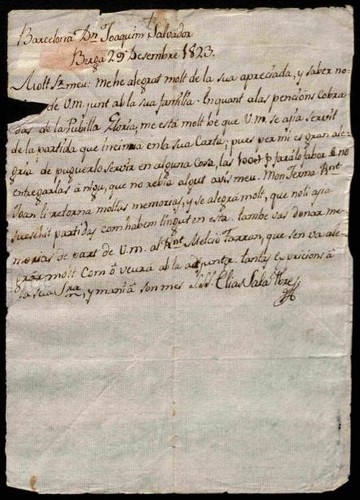 Barcelona Dn. Joaquim Salvador
Berga 29 Desembre 1823.
Molt Sr. meu: me he alegrat molt de la sua apreciada, y saber no
de V.m. junt ab la sua familia. En quant a las pencións Cobra
das de la Pubilla Gloria, me está molt bé que V.m. se ajia servit
de la partida que insinua en la sua Carta, pues per mi es gran ale
gria de puguerlo servir en alguna Cosa, las
entregarlas á ningu, que no rebia algut avis meu. Mon Jerma
Joan li retorna moltas memorias, y se alegra molt, que noli ajia
partidas com habem tingut en esta. tambe vas donar me
morias de part de V.m. al Melció Farran, que sen va ale
grar molt Com o veura ab la adjunta. tantas expresions á
la sua Sra., y mania son mes Elias Sala